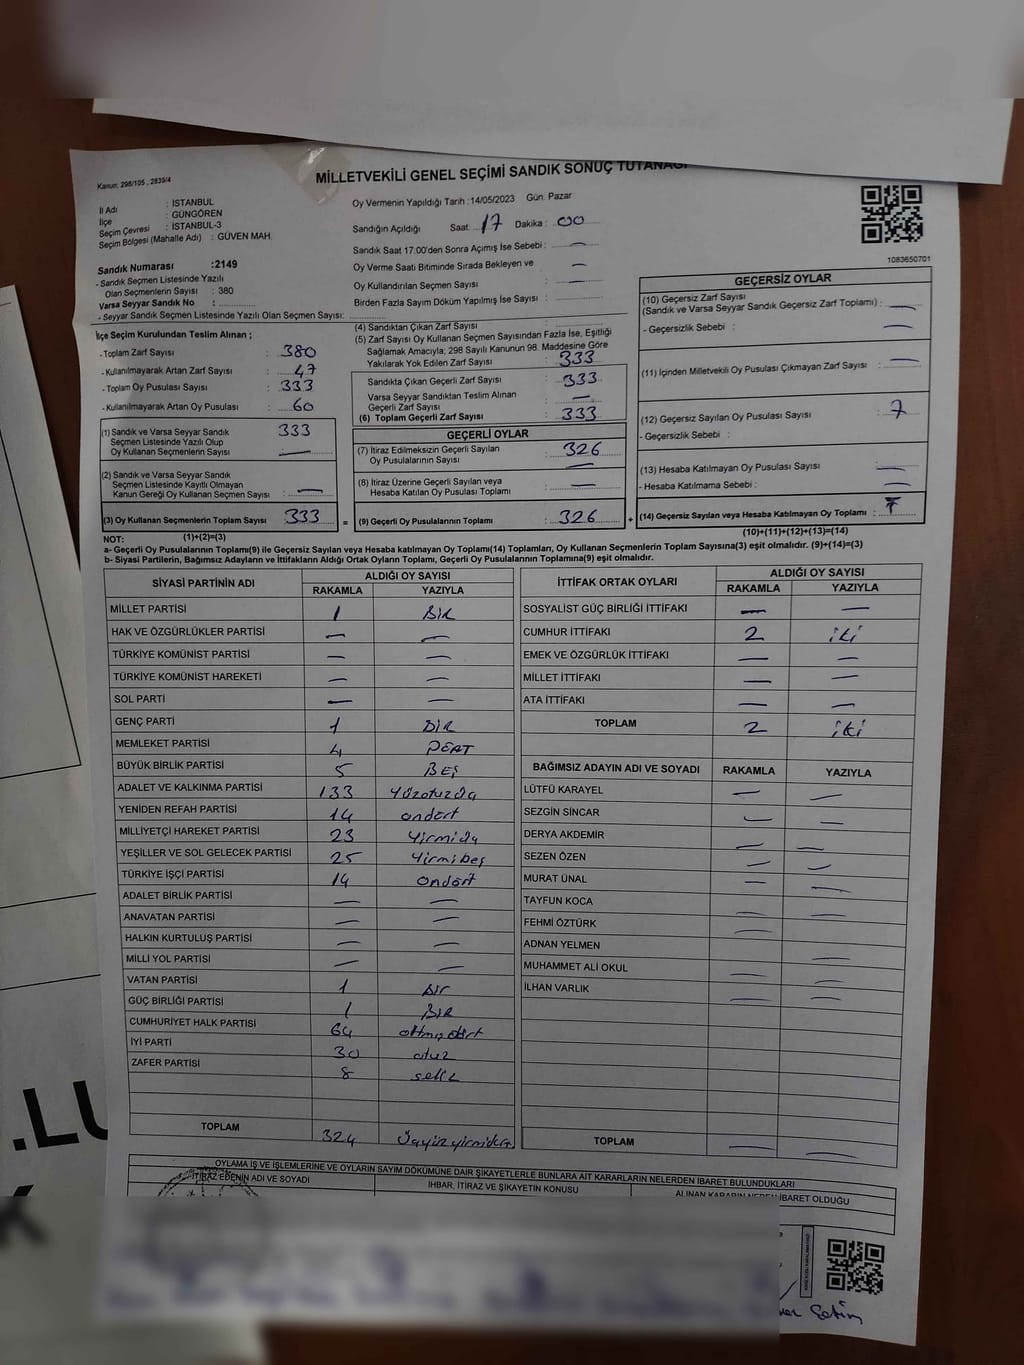 MİLLETVEKİLİ GENEL SEÇİMİ SANDIK SONUÇ TUTANAĞI
Kanun: 298/105 , 2839/4
İl Adı : İSTANBUL
İlçe : GÜNGÖREN
Seçim Çevresi : İSTANBUL-3
Seçim Bölgesi (Mahalle Adı) : GÜVEN MAH.
Oy Vermenin Yapıldığı Tarih :14/05/2023 Gün: Pazar
Sandığın Açıldığı Saat: 17 Dakika : 00
Sandık Saat 17:00'den Sonra Açımış İse Sebebi : —
Oy Verme Saati Bitiminde Sırada Bekleyen ve : —
Oy Kullandırılan Seçmen Sayısı : —
Birden Fazla Sayım Döküm Yapılmış İse Sayısı :
1083650701
Sandık Numarası :2149
- Sandık Seçmen Listesinde Yazılı
Olan Seçmenlerin Sayısı : 380
Varsa Seyyar Sandık No :
- Seyyar Sandık Seçmen Listesinde Yazılı Olan Seçmen Sayısı:
İlçe Seçim Kurulundan Teslim Alınan ;
- Toplam Zarf Sayısı : 380
- Kullanılmayarak Artan Zarf Sayısı : 47
- Toplam Oy Pusulası Sayısı : 333
- Kullanılmayarak Artan Oy Pusulası : 60
(1) Sandık ve Varsa Seyyar Sandık 333
Seçmen Listesinde Yazılı Olup
Oy Kullanan Seçmenlerin Sayısı : —
(2) Sandık ve Varsa Seyyar Sandık
Seçmen Listesinde Kayıtlı Olmayan
Kanun Gereği Oy Kullanan Seçmen Sayısı : —
(3) Oy Kullanan Seçmenlerin Toplam Sayısı : 333
(4) Sandıktan Çıkan Zarf Sayısı :
(5) Zarf Sayısı Oy Kullanan Seçmen Sayısından Fazla İse, Eşitliği
Sağlamak Amacıyla; 298 Sayılı Kanunun 98. Maddesine Göre
Yakılarak Yok Edilen Zarf Sayısı : 333
Sandıkta Çıkan Geçerli Zarf Sayısı : 333
Varsa Seyyar Sandıktan Teslim Alınan
Geçerli Zarf Sayısı : —
(6) Toplam Geçerli Zarf Sayısı : 333
GEÇERLİ OYLAR
(7) İtiraz Edilmeksizin Geçerli Sayılan : 326
Oy Pusulalarının Sayısı —
(8) İtiraz Üzerine Geçerli Sayılan veya
Hesaba Katılan Oy Pusulası Toplamı : —
= (9) Geçerli Oy Pusulalarının Toplamı : 326
GEÇERSİZ OYLAR
(10) Geçersiz Zarf Sayısı
(Sandık ve Varsa Seyyar Sandık Geçersiz Zarf Toplamı) : —
- Geçersizlik Sebebi : —
(11) İçinden Milletvekili Oy Pusulası Çıkmayan Zarf Sayısı : —
(12) Geçersiz Sayılan Oy Pusulası Sayısı : 7
- Geçersizlik Sebebi :
(13) Hesaba Katılmayan Oy Pusulası Sayısı : —
- Hesaba Katılmama Sebebi : —
+ (14) Geçersiz Sayılan veya Hesaba Katılmayan Oy Toplamı : 7
NOT: (1)+(2)=(3) (10)+(11)+(12)+(13)=(14)
a- Geçerli Oy Pusulasının Toplamı(9) ile Geçersiz Sayılan veya Hesaba katılmayan Oy Toplamı(14) Toplamları, Oy Kullanan Seçmenlerin Toplam Sayısına(3) eşit olmalıdır. (9)+(14)=(3)
b- Siyasi Partilerin, Bağımsız Adayların ve İttifakların Aldığı Ortak Oyların Toplamı, Geçerli Oy Pusulalarının Toplamına(9) eşit olmalıdır.
SİYASİ PARTİNİN ADI ALDIĞI OY SAYISI
RAKAMLA YAZIYLA
MİLLET PARTİSİ 1 BİR
HAK VE ÖZGÜRLÜKLER PARTİSİ — —
TÜRKİYE KOMÜNİST PARTİSİ — —
TÜRKİYE KOMÜNİST HAREKETİ — —
SOL PARTİ — —
GENÇ PARTİ 1 BİR
MEMLEKET PARTİSİ 4 DÖRT
BÜYÜK BİRLİK PARTİSİ 5 BEŞ
ADALET VE KALKINMA PARTİSİ 133 Yüzotuzüç
YENİDEN REFAH PARTİSİ 14 ondört
MİLLİYETÇİ HAREKET PARTİSİ 23 Yirmiüç
YEŞİLLER VE SOL GELECEK PARTİSİ 25 Yirmibeş
TÜRKİYE İŞÇİ PARTİSİ 14 ondört
ADALET BİRLİK PARTİSİ — —
ANAVATAN PARTİSİ — —
HALKIN KURTULUŞ PARTİSİ — —
MİLLİ YOL PARTİSİ — —
VATAN PARTİSİ 1 BİR
GÜÇ BİRLİĞİ PARTİSİ 1 BİR
CUMHURİYET HALK PARTİSİ 64 altmışdört
İYİ PARTİ 30 otuz
ZAFER PARTİSİ 8 sekiz
TOPLAM 324 üçyüzyirmidört
İTTİFAK ORTAK OYLARI ALDIĞI OY SAYISI
RAKAMLA YAZIYLA
SOSYALİST GÜÇ BİRLİĞİ İTTİFAKI — —
CUMHUR İTTİFAKI 2 iki
EMEK VE ÖZGÜRLÜK İTTİFAKI — —
MİLLET İTTİFAKI — —
ATA İTTİFAKI — —
TOPLAM 2 iki
BAĞIMSIZ ADAYIN ADI VE SOYADI RAKAMLA YAZIYLA
LÜTFÜ KARAYEL — —
SEZGİN SİNCAR — —
DERYA AKDEMİR — —
SEZEN ÖZEN — —
MURAT ÜNAL — —
TAYFUN KOCA — —
FEHMİ ÖZTÜRK —
ADNAN YELMEN —
MUHAMMET ALİ OKUL — —
İLHAN VARLIK — —
TOPLAM — —
OYLAMA İŞ VE İŞLEMLERİNE VE OYLARIN SAYIM DÖKÜMÜNE DAİR ŞİKAYETLERLE BUNLARA AİT KARARLARIN NELERDEN İBARET BULUNDUKLARI
İTİRAZ EDENİN ADI VE SOYADI
İHBAR, İTİRAZ VE ŞİKAYETİN KONUSU
ALINAN KARARIN NEDEN İBARET OLDUĞU
Çetin
.LU
K